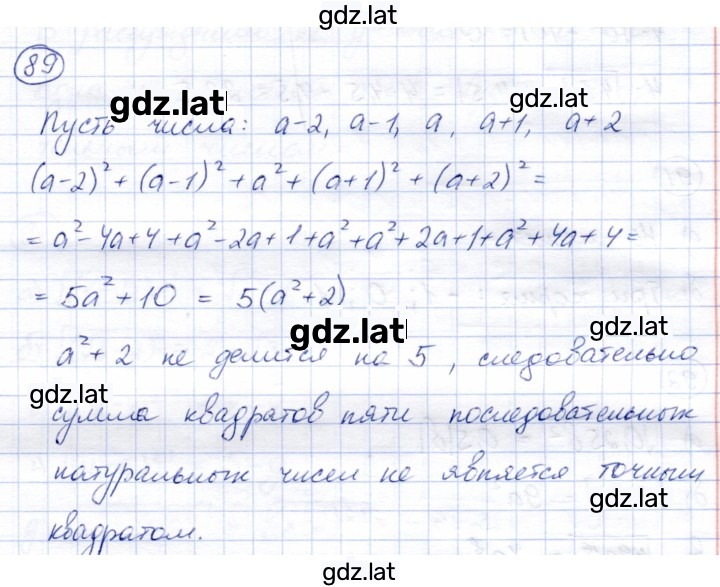 gdz.lat
89
gdz.lat
gdz.lat
Пусть числа: a-2, a-1, a, a+1, a+2
(a-2)²+(a-1)²+a²+(a+1)²+(a+2)²=
=a²-4a+4+a²-2a+1+a²+a²+2a+1+a²+4a+4=
=5a²+10 = 5(a²+2)
gdz.lat
gdz.lat
a²+2 не делится на 5, следовательно
gdz.lat
сумма квадратов пяти последовательных
натуральных чисел не является точным
gdz.lat
квадратом.
gdz.lat